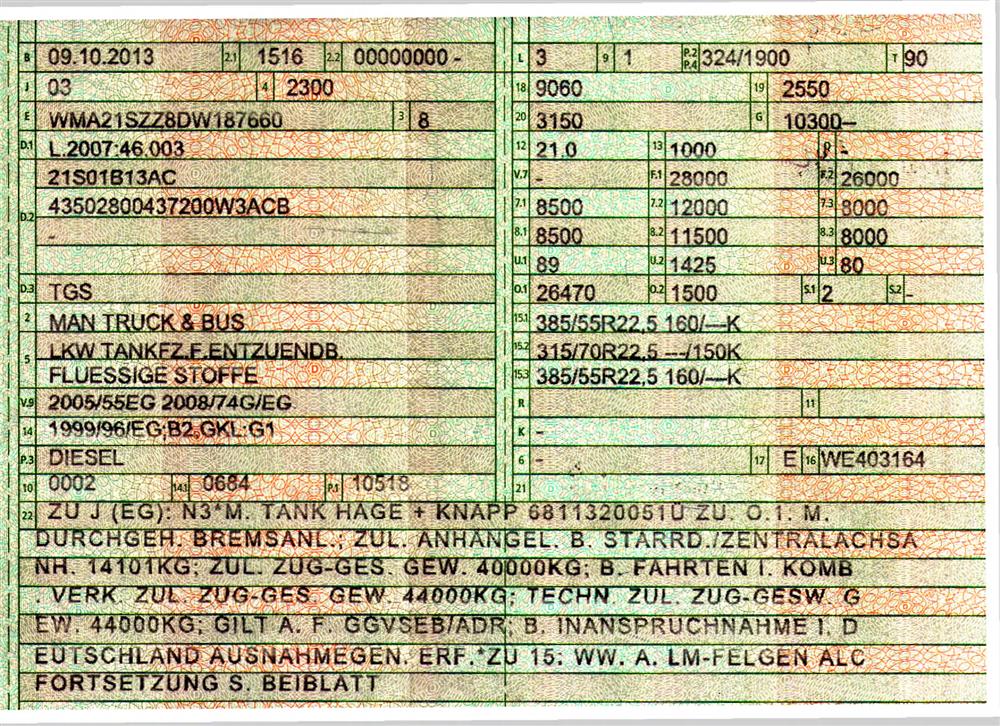 B 09.10.2013 2.1 1516 2.2 00000000 -
J 03 4 2300
E WMA21SZZ8DW187660 3 8
D.1 L.2007.46.003
21S01B13AC
D.2 43502800437200W3ACB
-
D.3 TGS
2 MAN TRUCK & BUS
5 LKW TANKFZ.F.ENTZUENDB.
FLUESSIGE STOFFE
V.9 2005/55EG 2008/74G/EG
14 1999/96/EG;B2,GKL:G1
P.3 DIESEL
10 0002 14.1 0684 P.1 10518
L 3 9 1 P.2 P.4 324/1900 T 90
18 9060 19 2550
20 3150 G 10300–
12 21.0 13 1000 -
V.7 - F.1 28000 F.2 26000
7.1 8500 7.2 12000 7.3 8000
8.1 8500 8.2 11500 8.3 8000
U.1 89 U.2 1425 U.3 80
O.1 26470 O.2 1500 S.1 2 S.2 -
15.1 385/55R22,5 160/---K
15.2 315/70R22,5 ---/150K
15.3 385/55R22,5 160/---K
R 11
K -
6 - 17 E 16 WE403164
21
22 ZU J (EG): N3*M. TANK HAGE + KNAPP 6811320051U ZU. O.1. M.
DURCHGEH. BREMSANL.; ZUL. ANHANGEL. B. STARRD./ZENTRALACHSA
NH. 14101KG; ZUL. ZUG-GES. GEW. 40000KG; B. FAHRTEN I. KOMB
. VERK. ZUL. ZUG-GES. GEW. 44000KG; TECHN. ZUL. ZUG-GESW. G
EW. 44000KG; GILT A. F. GGVSEB/ADR; B. INANSPRUCHNAHME I. D
EUTSCHLAND AUSNAHMEGEN. ERF.*ZU 15: WW. A. LM-FELGEN ALC
FORTSETZUNG S. BEIBLATT